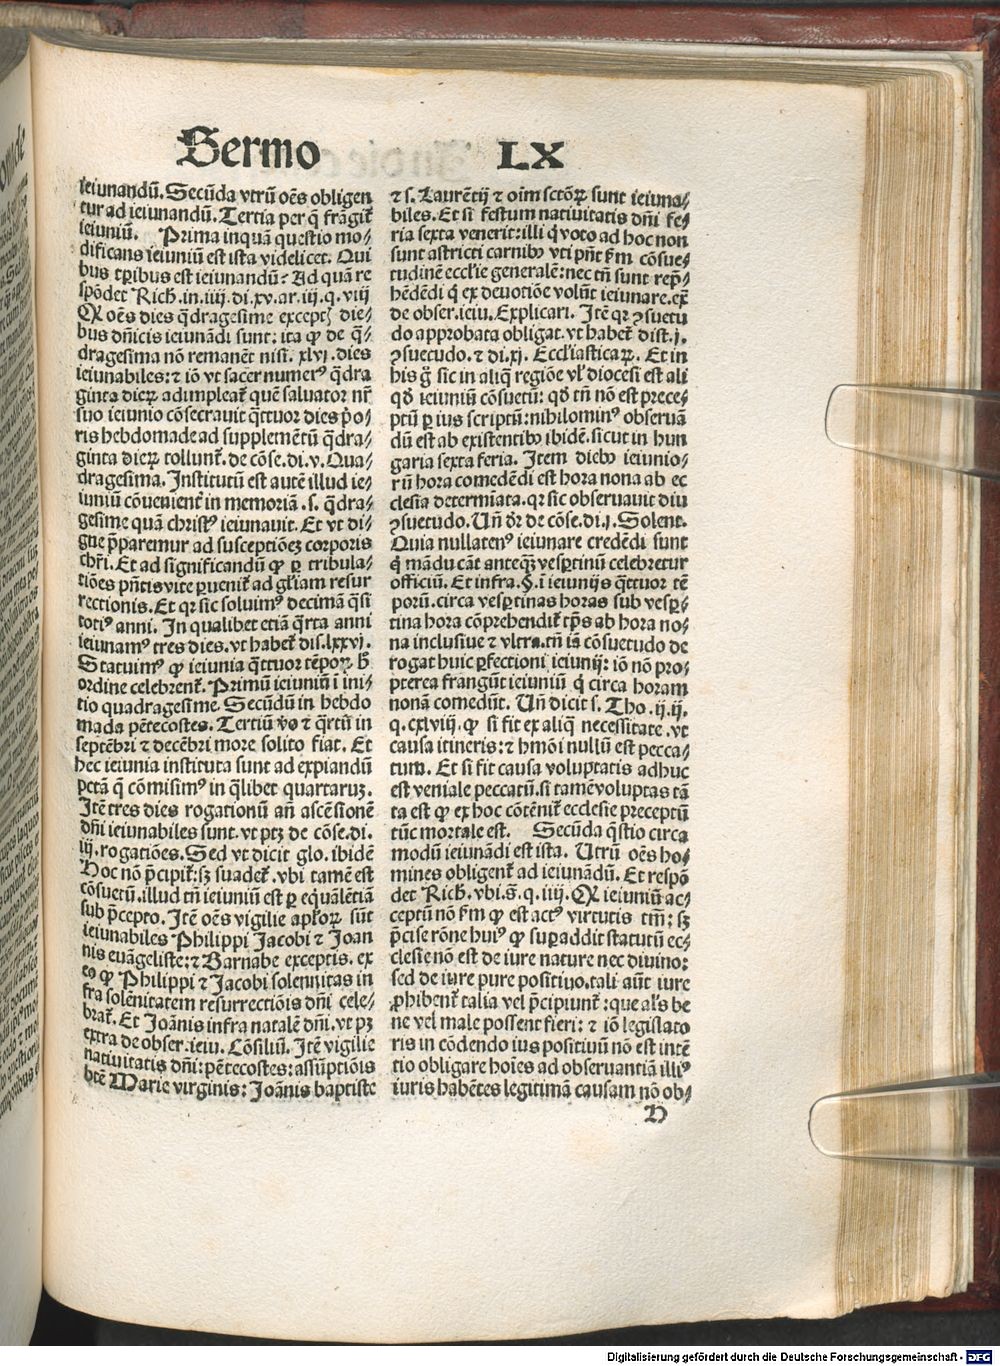 Sermo LX
ieiunandū. Secūda vtrū oēs obligen
tur ad ieiunandū. Tertia per q̄ frāgit᷑
ieiuniū. Prima inquā questio mo⸗
dificans ieiuniū est ista videlicet. Qui
bus tꝑibus est ieiunandū? Ad quā re
spōdet Rich. in. iiij. di. xv. ar. iij. q. viij
Ꝙ oēs dies q̄dragesime exceptꝭ die⸗
bus dn̄icis ieiunādi sunt: ita ꝙ de q̄⸗
dragesima nō remanēt nisi. xlvj. dies
ieiunabiles: ⁊ iō vt sacer numerꝰ q̄dra
ginta dieꝝ adimpleat᷑ quē saluator nr̄
suo ieiunio cōsecrauit q̄ttuor dies p̄o⸗
ris hebdomade ad supplemētū q̄dra⸗
ginta dieꝝ tollunt᷑. de cōse. di. v. Qua⸗
dragesima. Institutū est autē illud ie⸗
iuniū cōuenient᷑ in memoriā. s. q̄dra⸗
gesime quā christꝰ ieiunauit. Et vt di⸗
gne p̄paremur ad susceptiōeꝫ corporis
chr̄i. Et ad significandū ꝙ ꝑ tribula⸗
tiōes pn̄tis vite ꝑuenit᷑ ad gl̄iam resur
rectionis. Et qꝛ sic soluimꝰ decimā q̄si
totiꝰ anni. In qualibet etiā q̄rta anni
ieiunamꝰ tres dies. vt habet᷑ dis. lxxvj.
Statuimꝰ ꝙ ieiunia q̄ttuor tēpoꝝ h̄
ordine celebrent᷑. Primū ieiuniū ī ini⸗
tio quadragesime. Secūdū in hebdo
mada pētecostes. Tertiū v̄o ⁊ q̄rtū in
septēbri ⁊ decēbri more solito fiat. Et
hec ieiunia instituta sunt ad expiandū
pctā q̄ cōmisimꝰ in q̄libet quartaruꝫ.
Itē tres dies rogationū an̄ ascēsionē
dn̄i ieiunabiles sunt. vt ptꝫ de cōse. di.
iij. rogatiōes. Sed vt dicit glo. ibidē
Hoc nō p̄cipit᷑: sꝫ suadet᷑. vbi tamē est
cōsuetū. illud tn̄ ieiuniū est ꝑ equālētiā
sub p̄cepto. Itē oēs vigilie apl̓oꝝ sūt
ieiunabiles Philippi Jacobi ⁊ Joan
nis euāgeliste: ⁊ Barnabe exceptis. ex
eo ꝙ Philippi ⁊ Jacobi solennitas in
fra solēnitatem resurrectiōis dn̄i cele⸗
brat᷑. Et Joānis infra natalē dn̄i. vt pꝫ
extra de obser. ieiu. Cōsiliū. Itē vigilie
natiuitatis dn̄i: pētecostes: assūptiōis
btē Marie virginis: Joānis baptiste
⁊ s. Laurētij ⁊ oīm sctōꝝ sunt ieiuna⸗
biles. Et si festum natiuitatis dn̄i fe⸗
ria sexta venerit: illi q̓ voto ad hoc non
sunt astricti carnibꝰ vti pn̄t ẜm cōsue⸗
tudinē eccl̓ie generalē: nec tn̄ sunt rep̄⸗
hēdēdi q̓ ex deuotiōe volūt ieiunare. ex̄
de obser. ieiu. Explicari. Itē qꝛ ꝯsuetu
do approbata obligat. vt habet᷑ dist. j.
ꝯsuetudo. ⁊ di. xj. Eccl̓iasticaꝝ. Et in
his g̊ sic in aliq̄ regiōe vl̓ diocesi est ali
qd̄ ieiuniū cōsuetū: qd̄ tn̄ nō est prece⸗
ptū ꝑ ius scriptū: nihilominꝰ obseruā
dū est ab existentibꝰ ibidē. sicut in hun
garia sexta feria. Item diebꝰ ieiunio⸗
rū hora comedēdi est hora nona ab ec
clesia determīata. qꝛ sic obseruauit diu
ꝯsuetudo. Un̄ dr̄ de cōse. di. j. Solent.
Quia nullatenꝰ ieiunare credēdi sunt
q̓ mādu cāt anteqꝫ vesꝑtinū celebretur
officiū. Et infra. §. ī ieiunijs q̄ttuor tē
porū. circa vesꝑtinas horas sub vesꝑ⸗
tina hora cōprehendit᷑ tp̄s ab hora no⸗
na inclusiue ⁊ vltra. tn̄ iā cōsuetudo de
rogat huic ꝑfectioni ieiunij: iō nō pro⸗
pterea frangūt ieiuniū q̓ circa horam
nonā comedūt. Un̄ dicit s. Tho. ij. ij.
q. cxlviij. ꝙ si fit ex aliq̄ necessitate. vt
causa itineris: ⁊ hmōi nullū est pecca⸗
tum. Et si fit causa voluptatis adhuc
est veniale peccatū. si tamē voluptas tā
ta est ꝙ ex hoc cōtēnit᷑ ecclesie preceptū
tūc mortale est. Secūda q̄stio circa
modū ieiunādi est ista. Utrū oēs ho⸗
mines obligent᷑ ad ieiunādū. Et respō
det Rich. vbi. s̄. q. iiij. Ꝙ ieiuniū ac⸗
ceptū nō ẜm ꝙ est actꝰ virtutis tm̄: sꝫ
p̄cise rōne huiꝰ ꝙ suꝑaddit statutū ec⸗
clesie nō est de iure nature nec diuino:
sed de iure pure positiuo. tali aūt iure
ꝓhibent᷑ talia vel p̄cipiunt᷑: que al̓s be
ne vel male possent fieri: ⁊ iō legislato
ris in cōdendo ius positiuū nō est intē
tio obligare hoīes ad obseruantiā illiꝰ
iuris habētes legitimā causam nō ob⸗
H
Digitalisierung gefördert durch die Deutsche Forschungsgemeinschaft - DFG